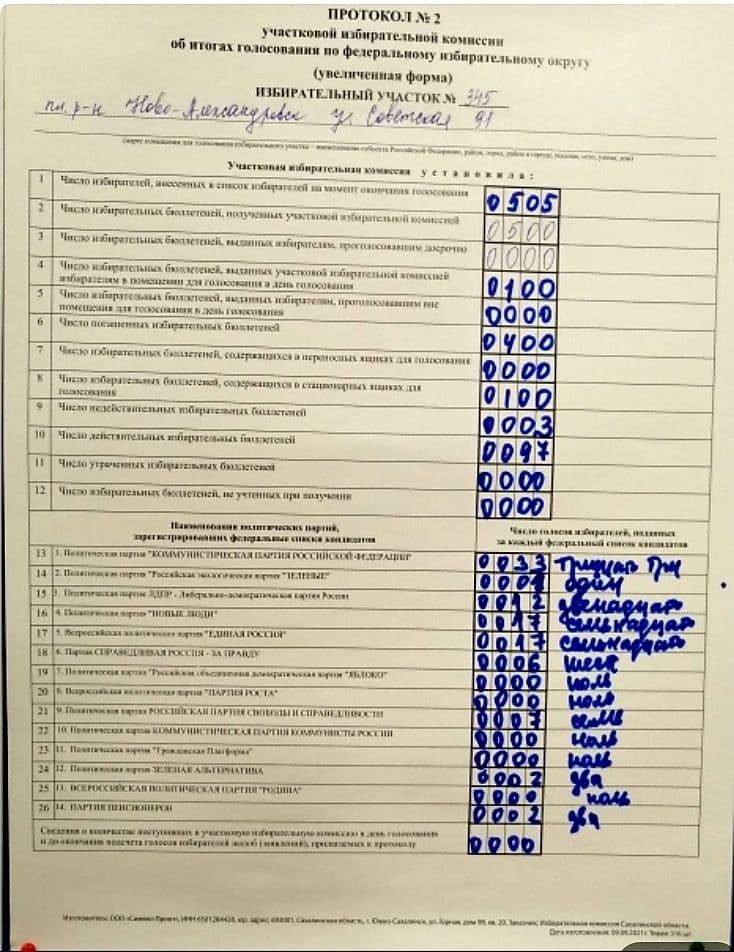 ПРОТОКОЛ № 2
участковой избирательной комиссии
об итогах голосования по федеральному избирательному округу
(увеличенная форма)
ИЗБИРАТЕЛЬНЫЙ УЧАСТОК № 345
пл. р-н Ново-Александровск ул Советская 91
(адрес помещения для голосования избирательного участка – наименование субъекта Российской Федерации, район, город, район в городе, поселок, село, улица, дом)
Участковая избирательная комиссия установила:
1 Число избирателей, внесенных в список избирателей на момент окончания голосования 0505
2 Число избирательных бюллетеней, полученных участковой избирательной комиссией 0500
3 Число избирательных бюллетеней, выданных избирателям, проголосовавшим досрочно 0000
4 Число избирательных бюллетеней, выданных участковой избирательной комиссией
избирателям в помещении для голосования в день голосования 0100
5 Число избирательных бюллетеней, выданных избирателям, проголосовавшим вне
помещения для голосования в день голосования 0000
6 Число погашенных избирательных бюллетеней 0400
7 Число избирательных бюллетеней, содержащихся в переносных ящиках для голосования 0000
8 Число избирательных бюллетеней, содержащихся в стационарных ящиках для
голосования 0100
9 Число недействительных избирательных бюллетеней 0003
10 Число действительных избирательных бюллетеней 0097
11 Число утраченных избирательных бюллетеней 0000
12 Число избирательных бюллетеней, не учтенных при получении 0000
Наименования политических партий,
зарегистрировавших федеральные списки кандидатов
Число голосов избирателей, поданных
за каждый федеральный список кандидатов
13 1. Политическая партия "КОММУНИСТИЧЕСКАЯ ПАРТИЯ РОССИЙСКОЙ ФЕДЕРАЦИИ" 0033 тридцать три
14 2. Политическая партия "Российская экологическая партия "ЗЕЛЁНЫЕ" 0001 один
15 3. Политическая партия ЛДПР - Либерально-демократическая партия России 0012 двенадцать
16 4. Политическая партия "НОВЫЕ ЛЮДИ" 0017 семнадцать
17 5. Всероссийская политическая партия "ЕДИНАЯ РОССИЯ" 0017 семьнадцать
18 6. Партия СПРАВЕДЛИВАЯ РОССИЯ - ЗА ПРАВДУ 0006 шесть
19 7. Политическая партия "Российская объединенная демократическая партия "ЯБЛОКО" 0000 ноль
20 8. Всероссийская политическая партия "ПАРТИЯ РОСТА" 0000 ноль
21 9. Политическая партия РОССИЙСКАЯ ПАРТИЯ СВОБОДЫ И СПРАВЕДЛИВОСТИ 0007 семь
22 10. Политическая партия КОММУНИСТИЧЕСКАЯ ПАРТИЯ КОММУНИСТЫ РОССИИ 0000 ноль
23 11. Политическая партия "Гражданская Платформа" 0000 ноль
24 12. Политическая партия ЗЕЛЕНАЯ АЛЬТЕРНАТИВА 0002 два
25 13. ВСЕРОССИЙСКАЯ ПОЛИТИЧЕСКАЯ ПАРТИЯ "РОДИНА" 0000 ноль
26 14. ПАРТИЯ ПЕНСИОНЕРОВ 0002 два
Сведения о количестве поступивших в участковую избирательную комиссию в день голосования
и до окончания подсчета голосов избирателей жалоб (заявлений), прилагаемых к протоколу 0000
Изготовитель: ООО ИНН 6501284428, юр. адрес: 693001, Сахалинская область, г. Южно-Сахалинск, ул. Горная, дом 9В, кв. 20, Заказчик: Избирательная комиссия Сахалинской области.
Дата изготовления: 09.09.2021 г. Тираж: 316 шт